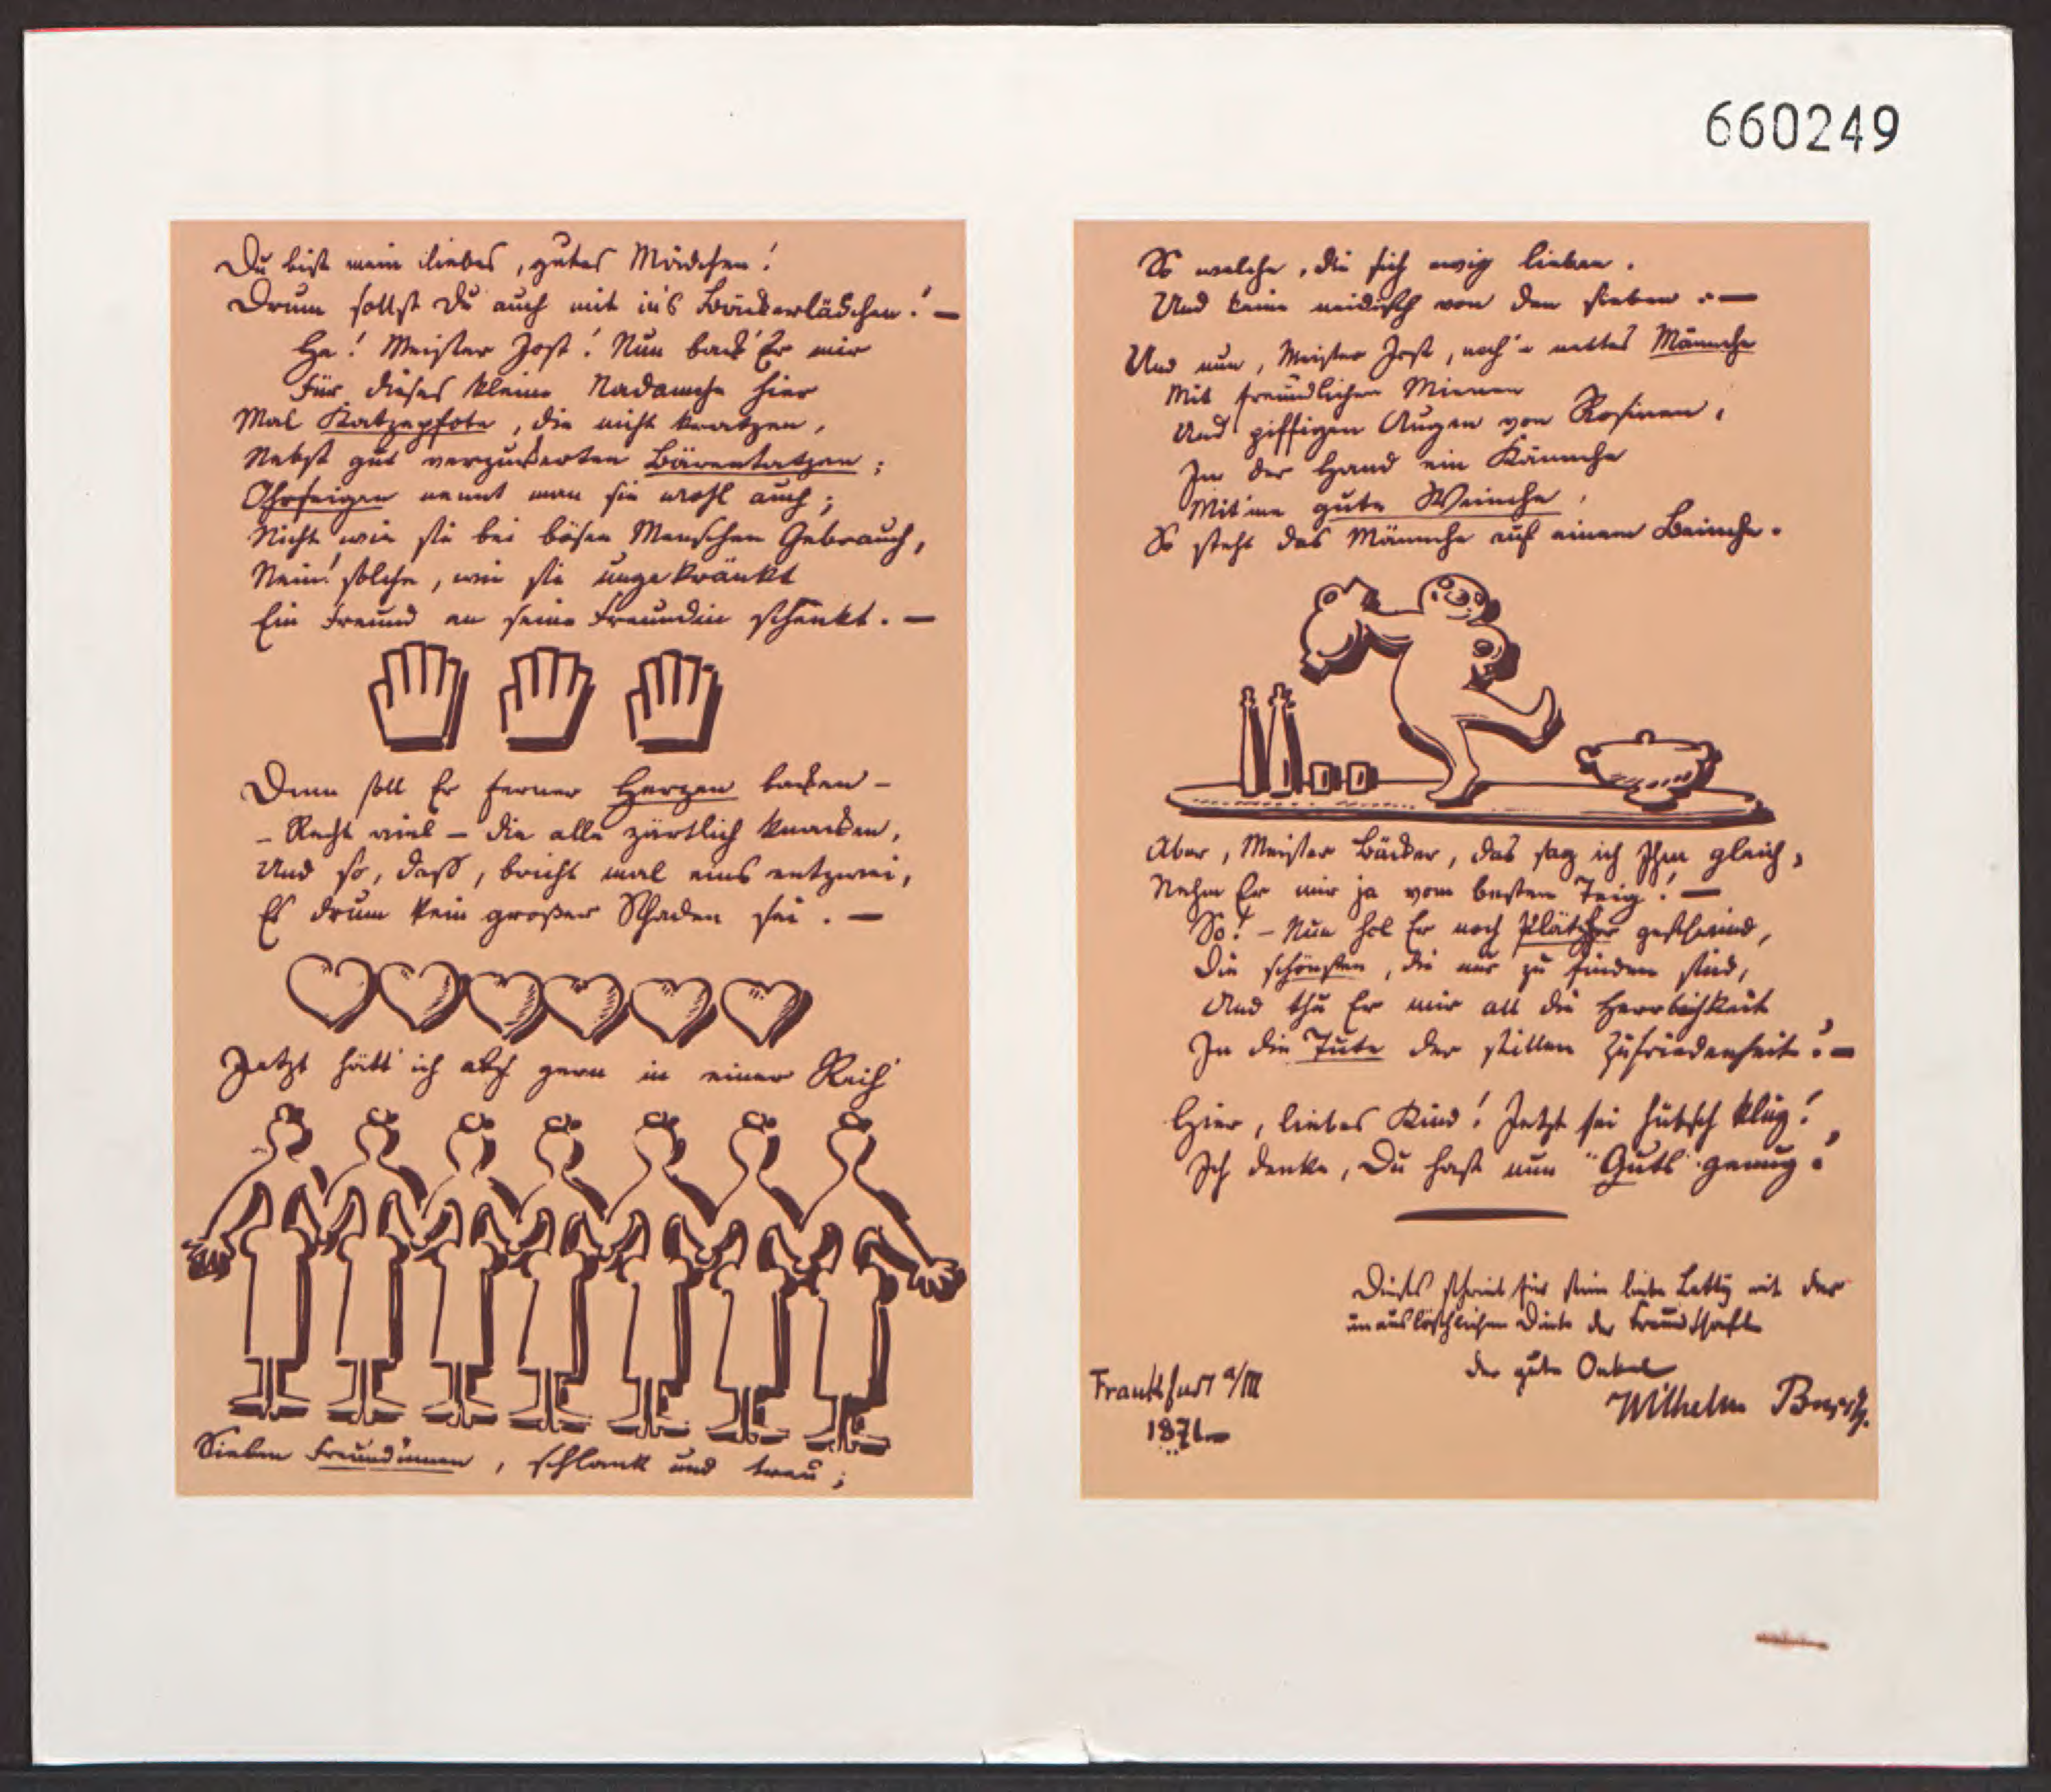 660249
Du bist mein liebes, gutes Mädchen!
Drum sollst Du auch mit in's Bäckerlädchen! —
Ha! Meister Jost! Nun back' Er mir
Für dieses kleine Madamche hier
Mal Katzepfote, die nicht kratzen,
Nebst gut verzuckerten Bärentatzen;
Ohrfeigen nennt man sie wohl auch;
Nicht wie sie bei bösen Menschen Gebrauch,
Nein! solche, wie sie ungekränkt
Ein Freund an seine Freundin schenkt. —
Denn soll Er ferner Herzen backen –
– Recht viel – die alle zärtlich knacken,
Und so, daß, bricht mal eins entzwei,
Es drum kein großer Schaden sei. —
Jetzt hätt' ich gern in einer Reih'
Sieben Freundinnen, schlank und treu;
So welche, die sich ewig lieben.
Und keine neidisch von den sieben. —
Und nun, Meister Jost, noch 'n nettes Männche
Mit freundlichen Mienen
Und piffigen Augen von Rosinen,
In der Hand ein Kännche
Mit'me gute Weinche,
So steht das Männche auf einem Beinche.
Aber, Meister Bäcker, das sag ich Ihm gleich,
Nehm Er mir ja vom besten Teig! —
So! – Nun hol Er noch Plätzher geschwind,
Die schönsten, die nur zu finden sind,
Und thu Er mir all die Herrlichkeit
In die Tute der stillen Zufriedenheit! —
Hier, liebes Kind! Jetzt sei hübsch klug!
Ich denke, Du hast nun "Guts" genug!
Dieses schrieb für seine liebe Letty mit der
unauslöschlichen Dinte der Freundschaft
der gute Onkel
Wilhelm Busch.
Frankfurt a/M
1871